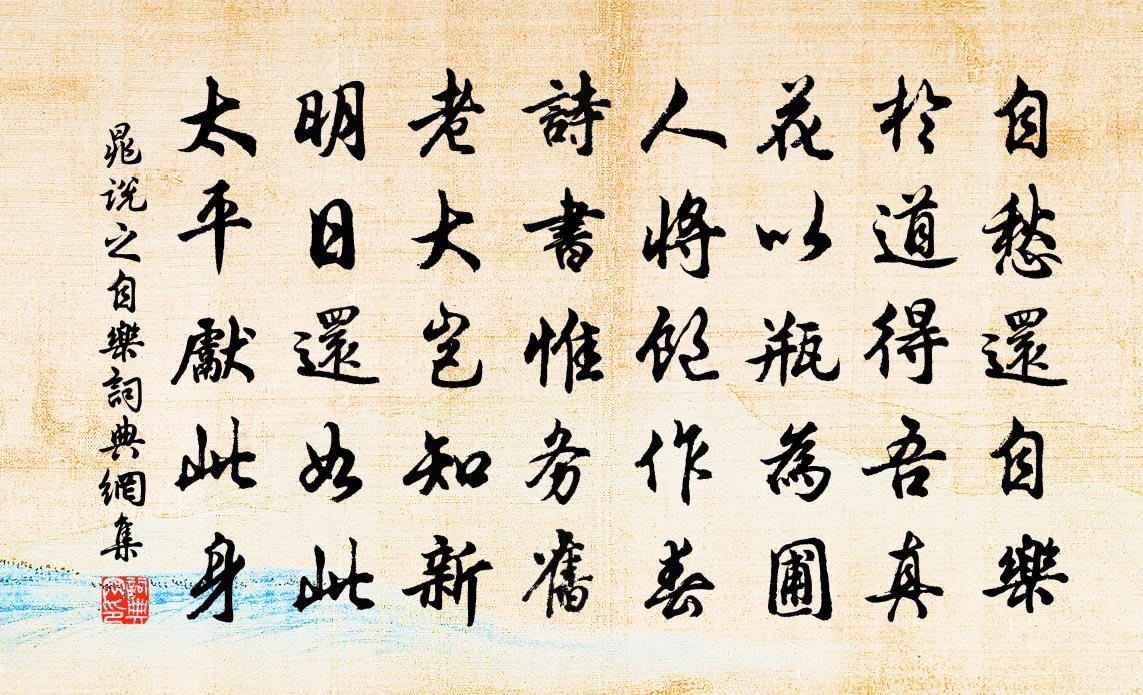 自愁還自樂
於道得吾真
花以瓶為圃
人將飽作春
詩書惟务舊
老大豈知新
明日還如此
太平獻此身
晁說之自樂詞典網集